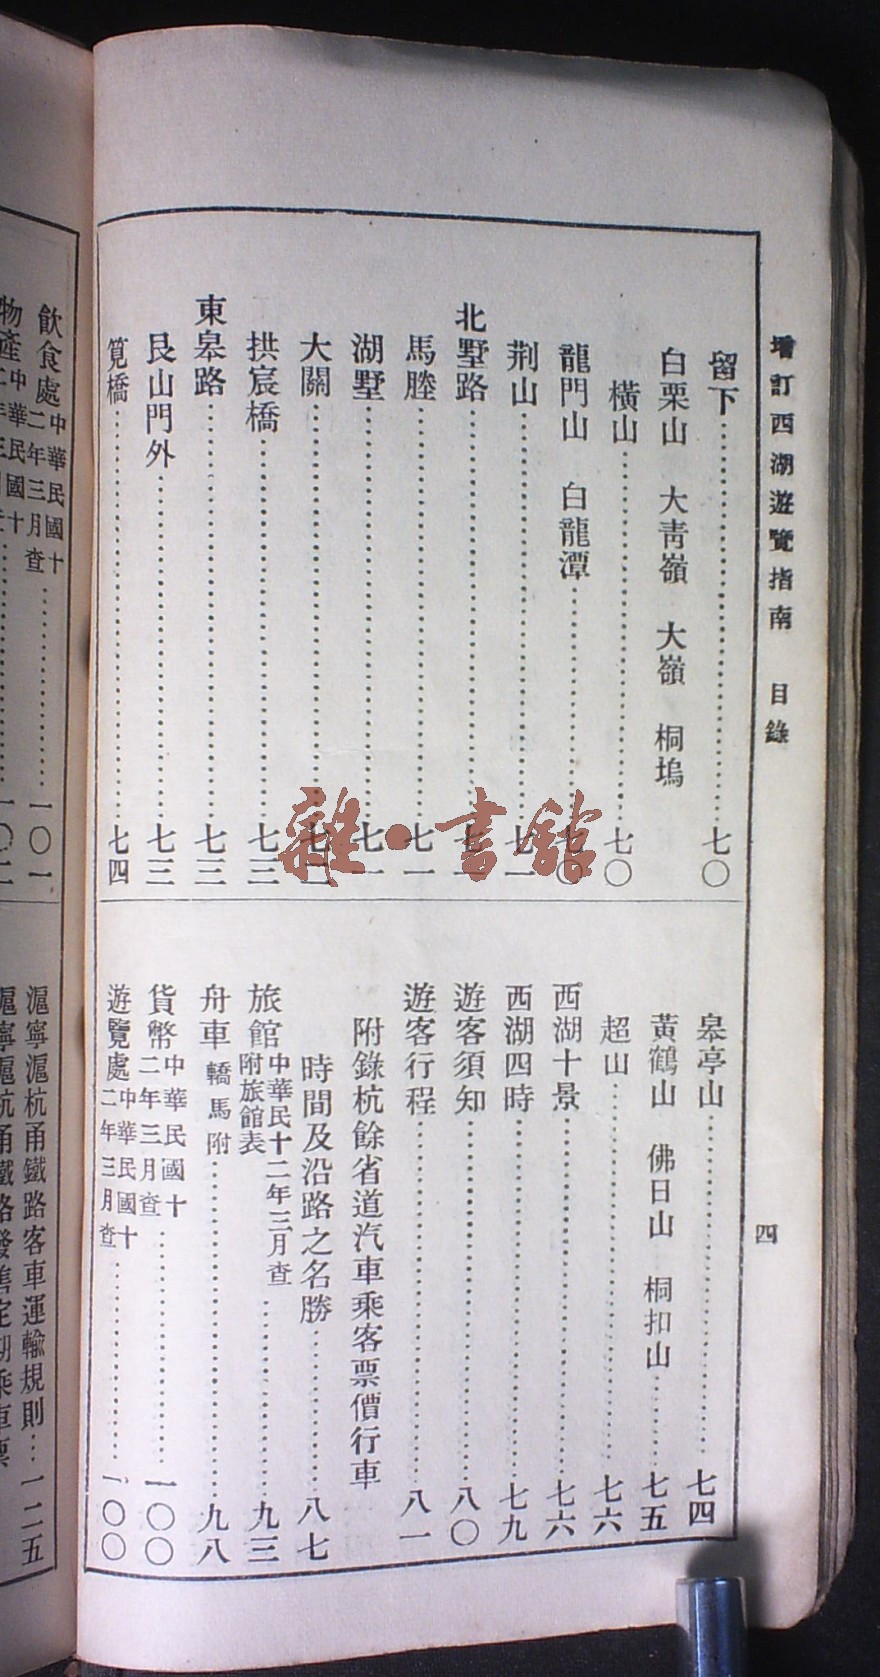 增訂西湖遊覽指南 目錄 四
留下……七〇
白栗山 大青嶺 大嶺 桐塢
橫山……七〇
龍門山 白龍潭……七〇
荆山……七一
北墅路……七一
馬塍……七一
湖墅……七一
大關……七二
拱宸橋……七三
東皋路……七三
艮山門外……七三
筧橋……七四
皋亭山……七四
黃鶴山 佛日山 桐扣山……七五
超山……七六
西湖十景……七六
西湖四時……七九
遊客須知……八〇
遊客行程……八一
附錄杭餘省道汽車乘客票價行車
時間及沿路之名勝……八七
旅館中華民十二年三月查附旅館表……九三
舟車轎馬附……九八
貨幣中華民國十二年三月查……一〇〇
遊覽處中華民國十二年三月查……一〇〇
飲食處中華民國十二年三月查……一〇一
物產中華民國十二年三月查……一〇二
滬寧滬杭甬鐵路客車運輸規則……一二五
滬寧滬杭甬鐵路發售定期乘車票
雜·書館